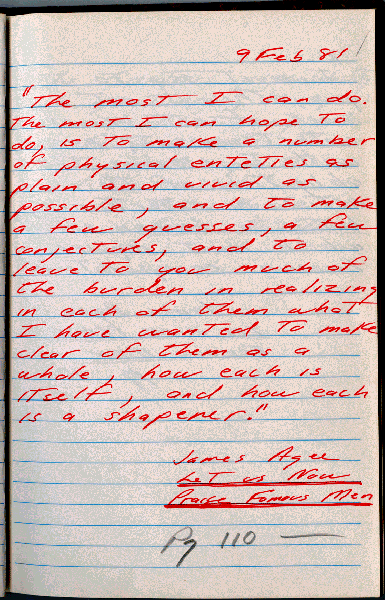 9 Feb 81
"The most I can do.
The most I can hope to
do, is to make a number
of physical enteties as
plain and vivid as
possible, and to make
a few guesses, a few
conjectures, and to
leave to you much of
the burden in realizing
in each of them what
I have wanted to make
clear of them as a
whole, how each is
itself, and how each
is a shapener."
James Agee
Let us Now
Praise Famous Men
Pg 110 —